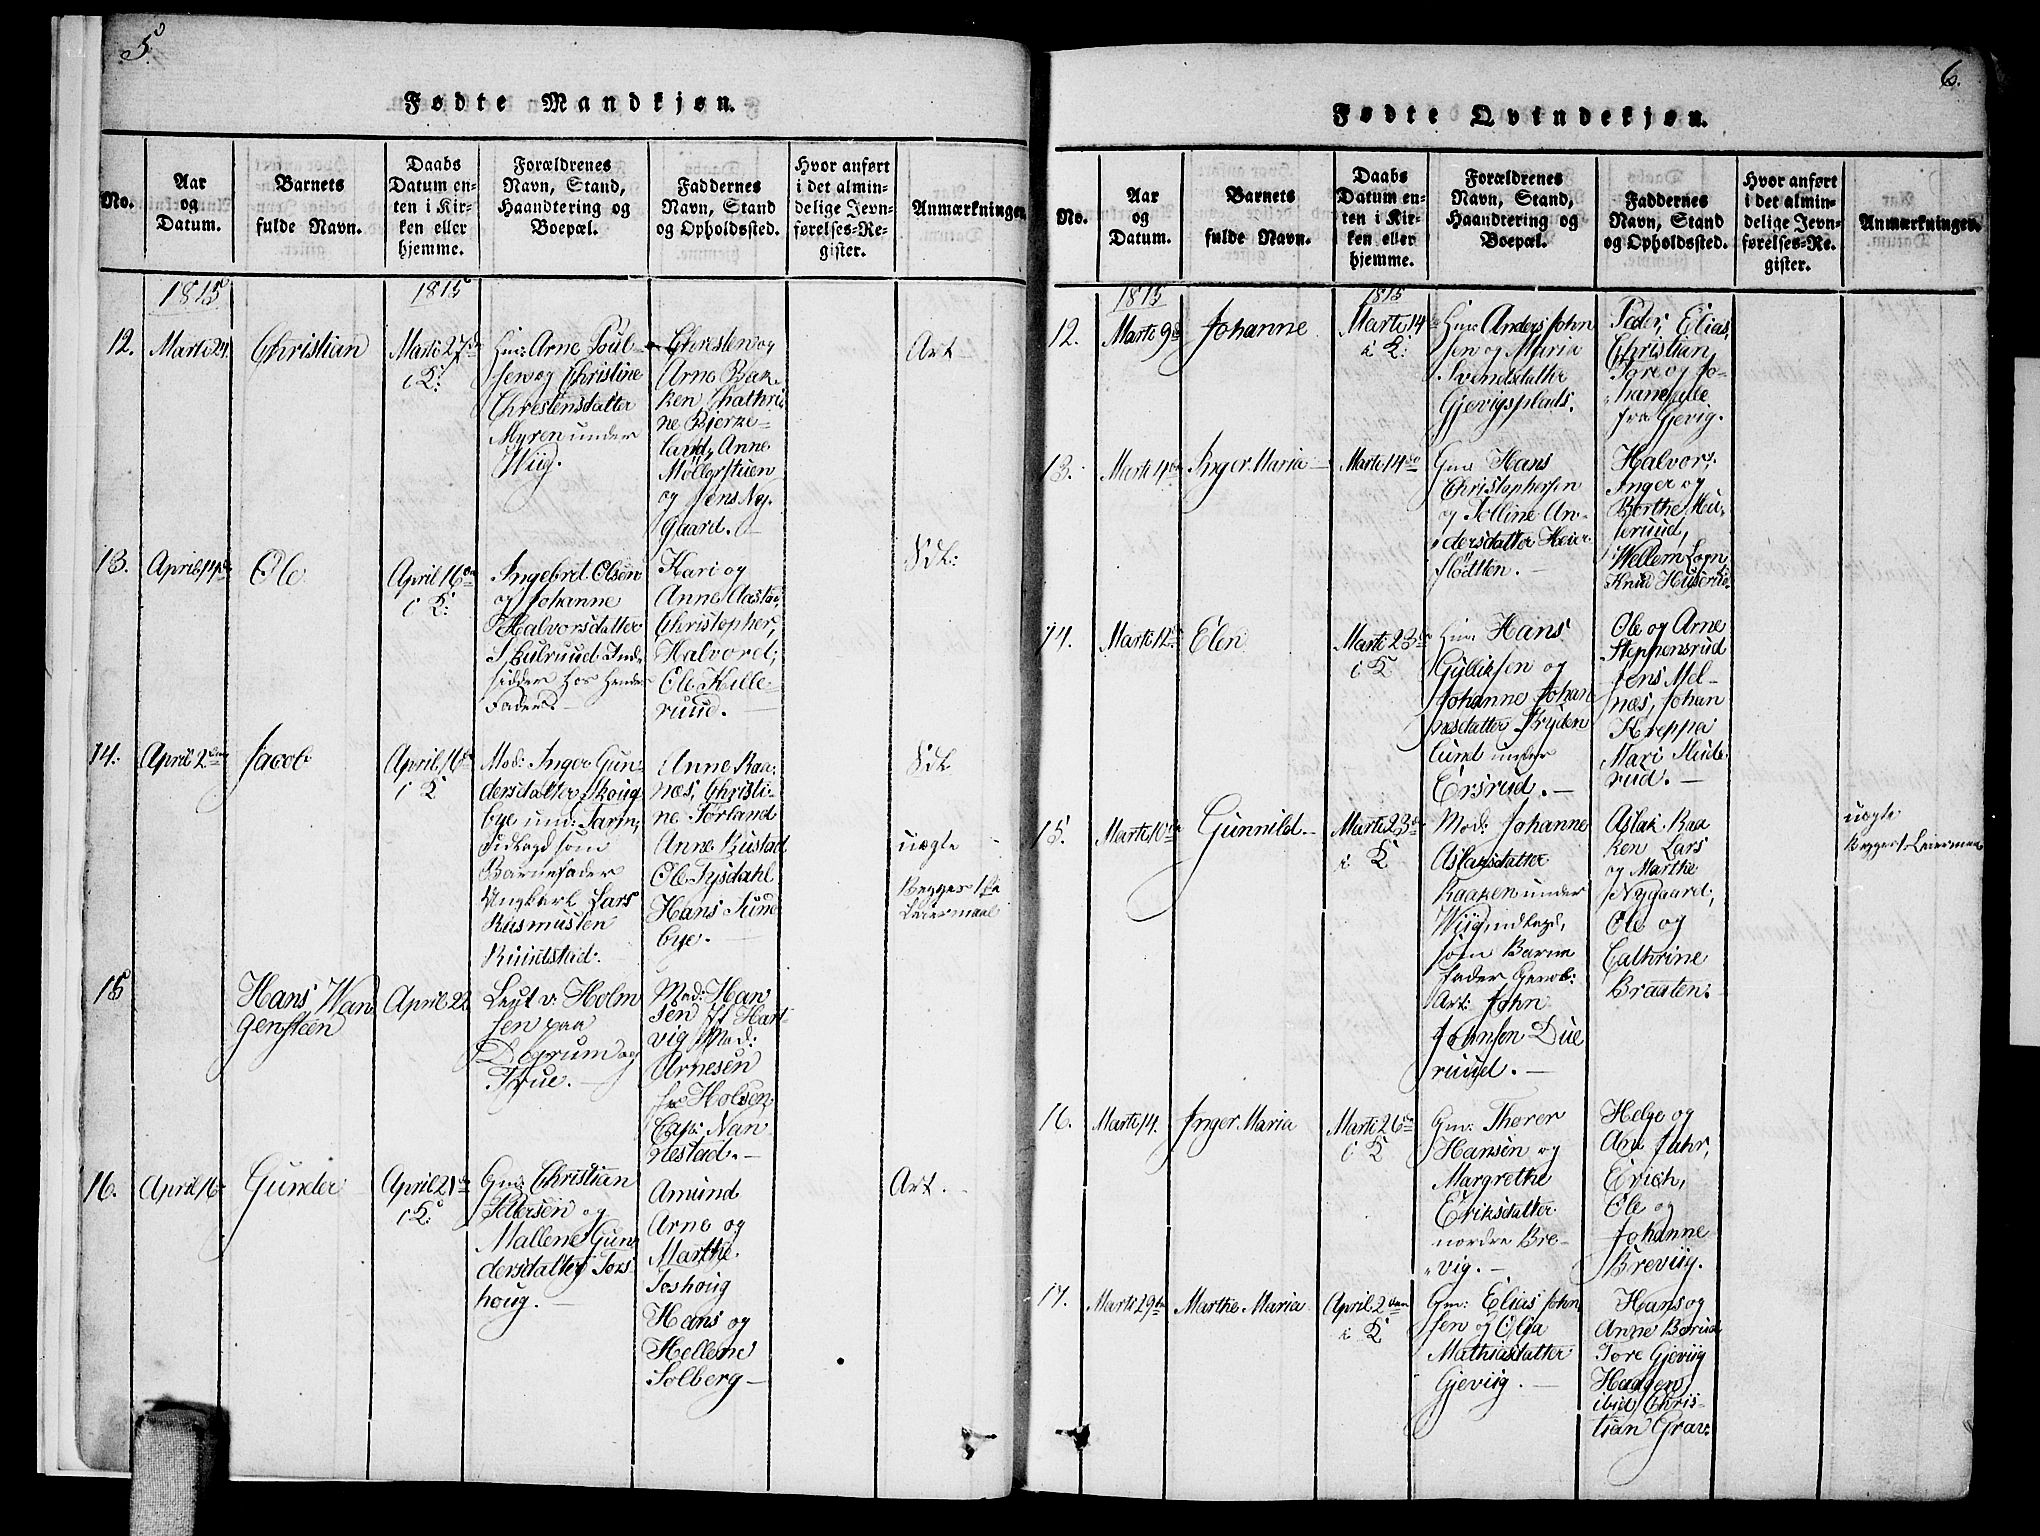 5.
Fødte Mandkjøn.
No.
Aar
og
Datum.
Barnets
fulde Navn.
Daabs
Datum en-
ten i Kir-
ken eller
hjemme.
Forældrenes
Navn, Stand,
Haandtering og
Boepæl.
Faddernes
Navn, Stand
og Opholdssted.
Hvor anført
i det almin-
delige Jevn-
førelses-Re-
gister.
Anmærkninger.
1815
1815
12.
Marti 24
Christian
Marti 27de
i K:
Gm: Arne Poul-
sen og Christine
Christensdatter
Myren under
Wiig.
Christen og
Arne Bak-
ken Chathri-
ne Bjerke-
land, Anne
Möllerstuen
og Jens Ny-
gaard.
Art
13.
April 14de
Ole
April 16de
i K:
Ingebret Olsen
og Johanne
Halvorsdatter
Skulruud Ind-
sidder hos hendes
Fader.
Kari og
Anne Aastad,
Christopher,
Halvord,
Ole Kille-
ruud.
Sdk:
14.
April 2den
Jacob
April 16de
i K
Mod: Inger Gun-
dersdatter Skoug-
bye und: Tarm,
Udlagd som
Barnefader
Ungkarl Lars
Rasmussen
Rundstad.
Anne Raa-
næs, Christi-
ne Torland
Anne Rustad
Ole Tysdahl
Hans Sund-
bye.
Sdk
uægte
Begges 1ste
Leiermaal
15
Hans Wan-
gensteen
April 22
Leut v: Holm-
sen paa
og
Frue.
Mad: Han-
sen Hart-
vig Mad:
Arnesen
Holsen
Cap: Nan-
nestad.
16.
April 16
Gunder
April 21de
i K:
Gm: Christian
Pettersen og
Mallene Gun-
dersdatter Tors-
houg.
Amund
Arne og
Marthe
Toshoug
Hans og
Hellene
Solberg
Art.
6.
Fødte Qvindekjøn.
No.
Aar
og
Datum.
Barnets
fulde Navn.
Daabs
Datum en-
ten i Kir-
ken eller
hjemme.
Forældrenes
Navn, Stand,
Haandtering og
Boepæl.
Faddernes
Navn, Stand
og Opholdssted.
Hvor anført
i det almin-
delige Jevn-
førelses-Re-
gister.
Anmærkninger.
1815
1815
12.
Marti 9de
Johanne
Marti 14de
i K:
Gm: Anders John-
sen og Maria
Svendsdatter
Gjevigsplads.
Peder, Elias,
Christian,
Tore og Jo-
hane alle
fra Gjevig.
13.
Marti 4de
Inger Maria
Marti 14de
Gm: Hans
Christophersen
og Tolline An-
dersdatter Heier-
slødtten.
Halvor,
Inger og
Berthe Mu-
seruud,
Wellem Logn
Knud Huserud
14.
Marti 12te
Elen
Marti 23de
i K
Gm: Hans
Gulliksen og
Johanne Johan-
nesdatter Fryden-
lund under
Ersrud.
Ole og Arne
Stephensrud
Jens Mel-
næs, Johan
Kreppa
Mari Slule-
rud.
15.
Marti 10de
Gunnild.
Marti 23de
i K
Mod: Johanne
Aslaksdatter
Raaken under
Wiig udlagd,
som Barne
fader
Art: John
Johnsen Due-
ruud.
Aslak Raa-
ken Lars
og Marthe
Nygaard,
Ole og
Cathrine
Braaten.
uægte
Begges 1 Leiermaal
16.
Marti 14.
Inger Maria
Marti 26de
i K
Gm: Thorer
Hansen og
Margrethe
Eriksdatter
nordre Bre-
vig.
Helge og
Ane Jahr,
Erich,
Ole og
Johanne
Breviig.
17.
Marti 29de
Marthe Maria
April 2den
i K
Gm: Elias John-
sen og Olja
Mathiasdatter
Gjeviig.
Hans og
Anne Borud
Tore Gjeviig
Haagen
ibid Chris-
tian Grav: